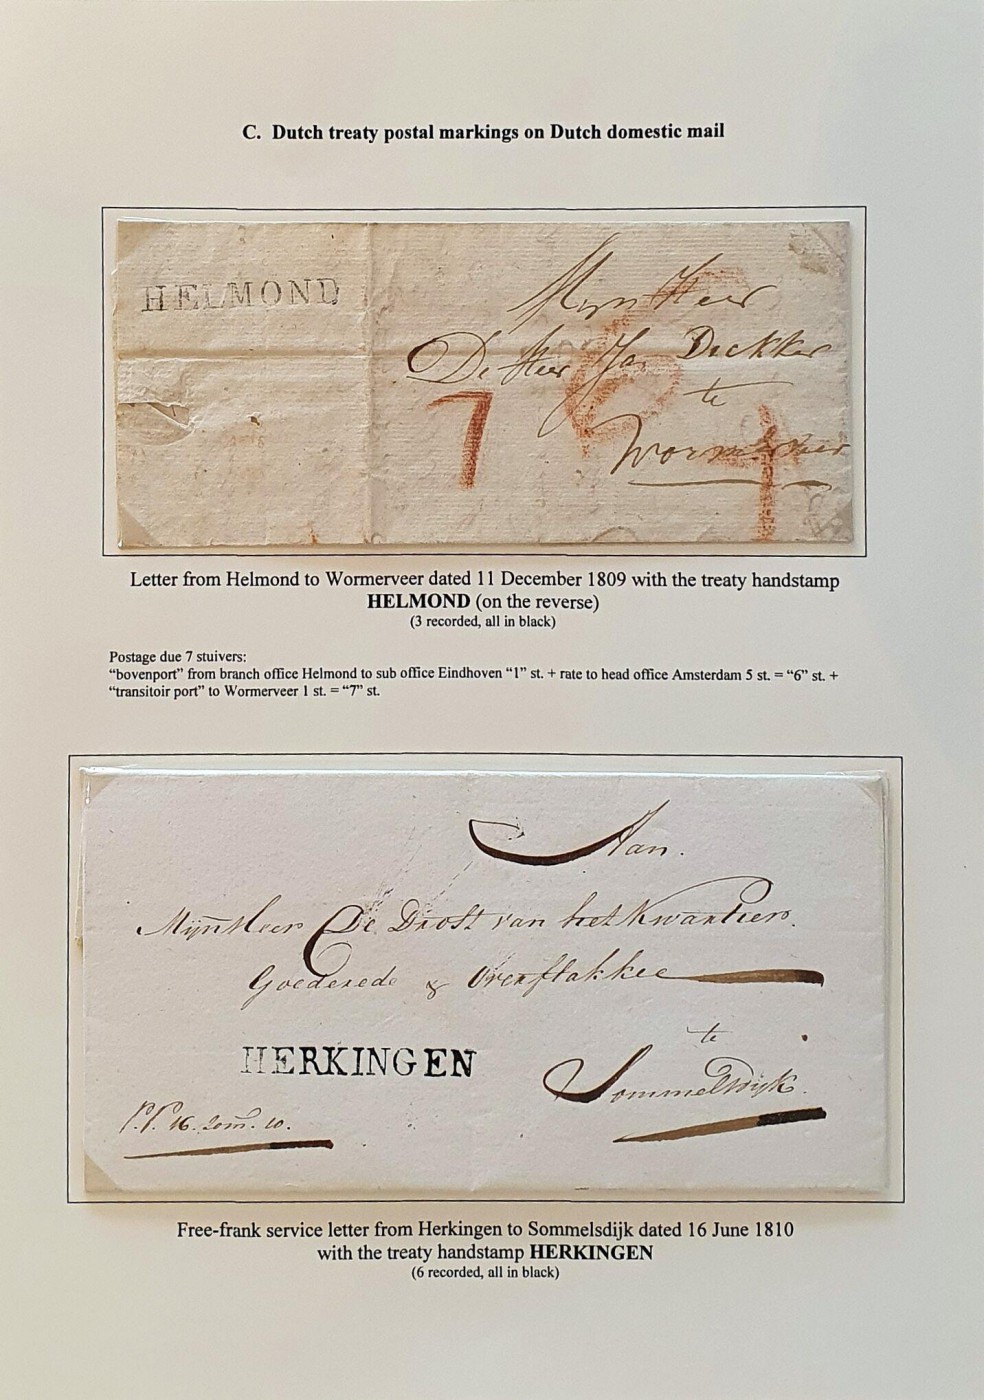 C. Dutch treaty postal markings on Dutch domestic mail
HELMOND
Mijn Heer
De Heer Jan Dekker
te
7 6
Wormerveer
1
Letter from Helmond to Wormerveer dated 11 December 1809 with the treaty handstamp
HELMOND (on the reverse)
(3 recorded, all in black)
Postage due 7 stuivers:
“bovenport” from branch office Helmond to sub office Eindhoven “1” st. + rate to head office Amsterdam 5 st. = “6” st. +
“transitoir port” to Wormerveer 1 st. = “7” st.
Aan.
Mijn Heer De Drost van het Kwartier.
Goederede & Overflakkee
te
HERKINGEN
Sommelsdijk.
P.P. 16. Zom. 10.
Free-frank service letter from Herkingen to Sommelsdijk dated 16 June 1810
with the treaty handstamp HERKINGEN
(6 recorded, all in black)